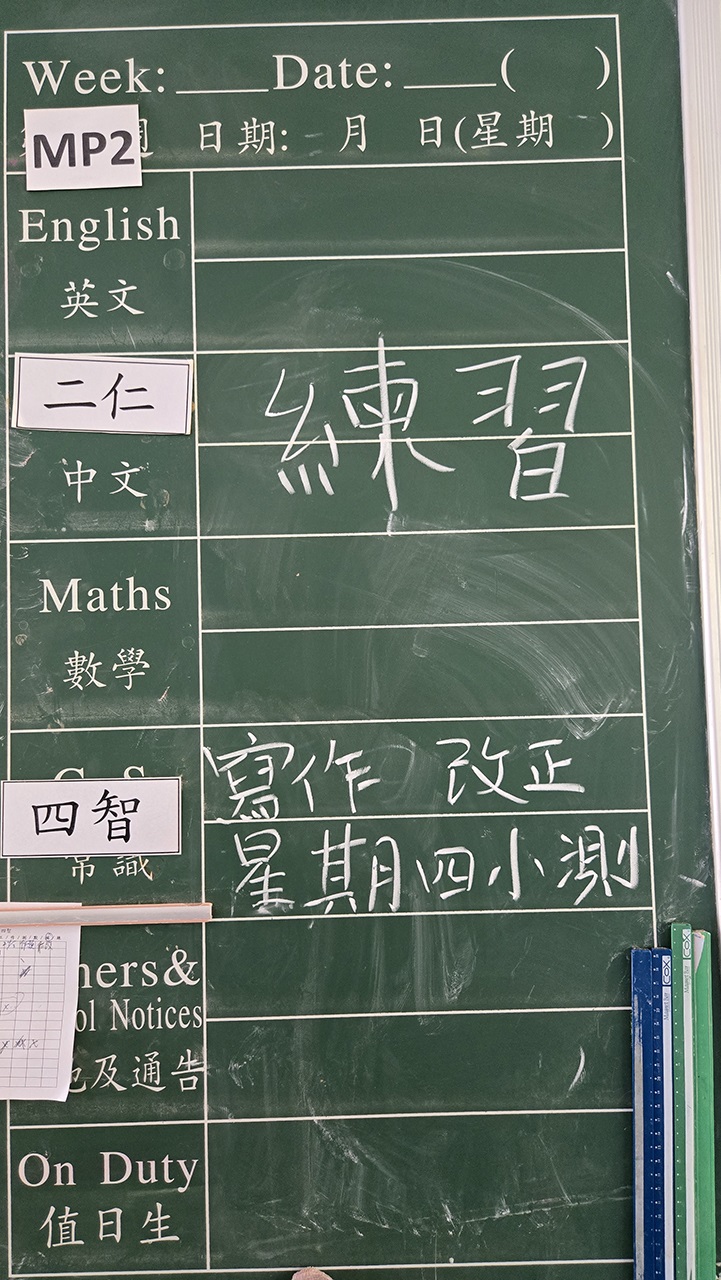 Week: ____ Date: ____( )
MP2
日期: 月 日(星期 )
English
英文
二仁
練習
中文
Maths
數學
寫作 改正
四智
常識
星期四小測
hers&
ol Notices
及通告
On Duty
值日生
COX
COX